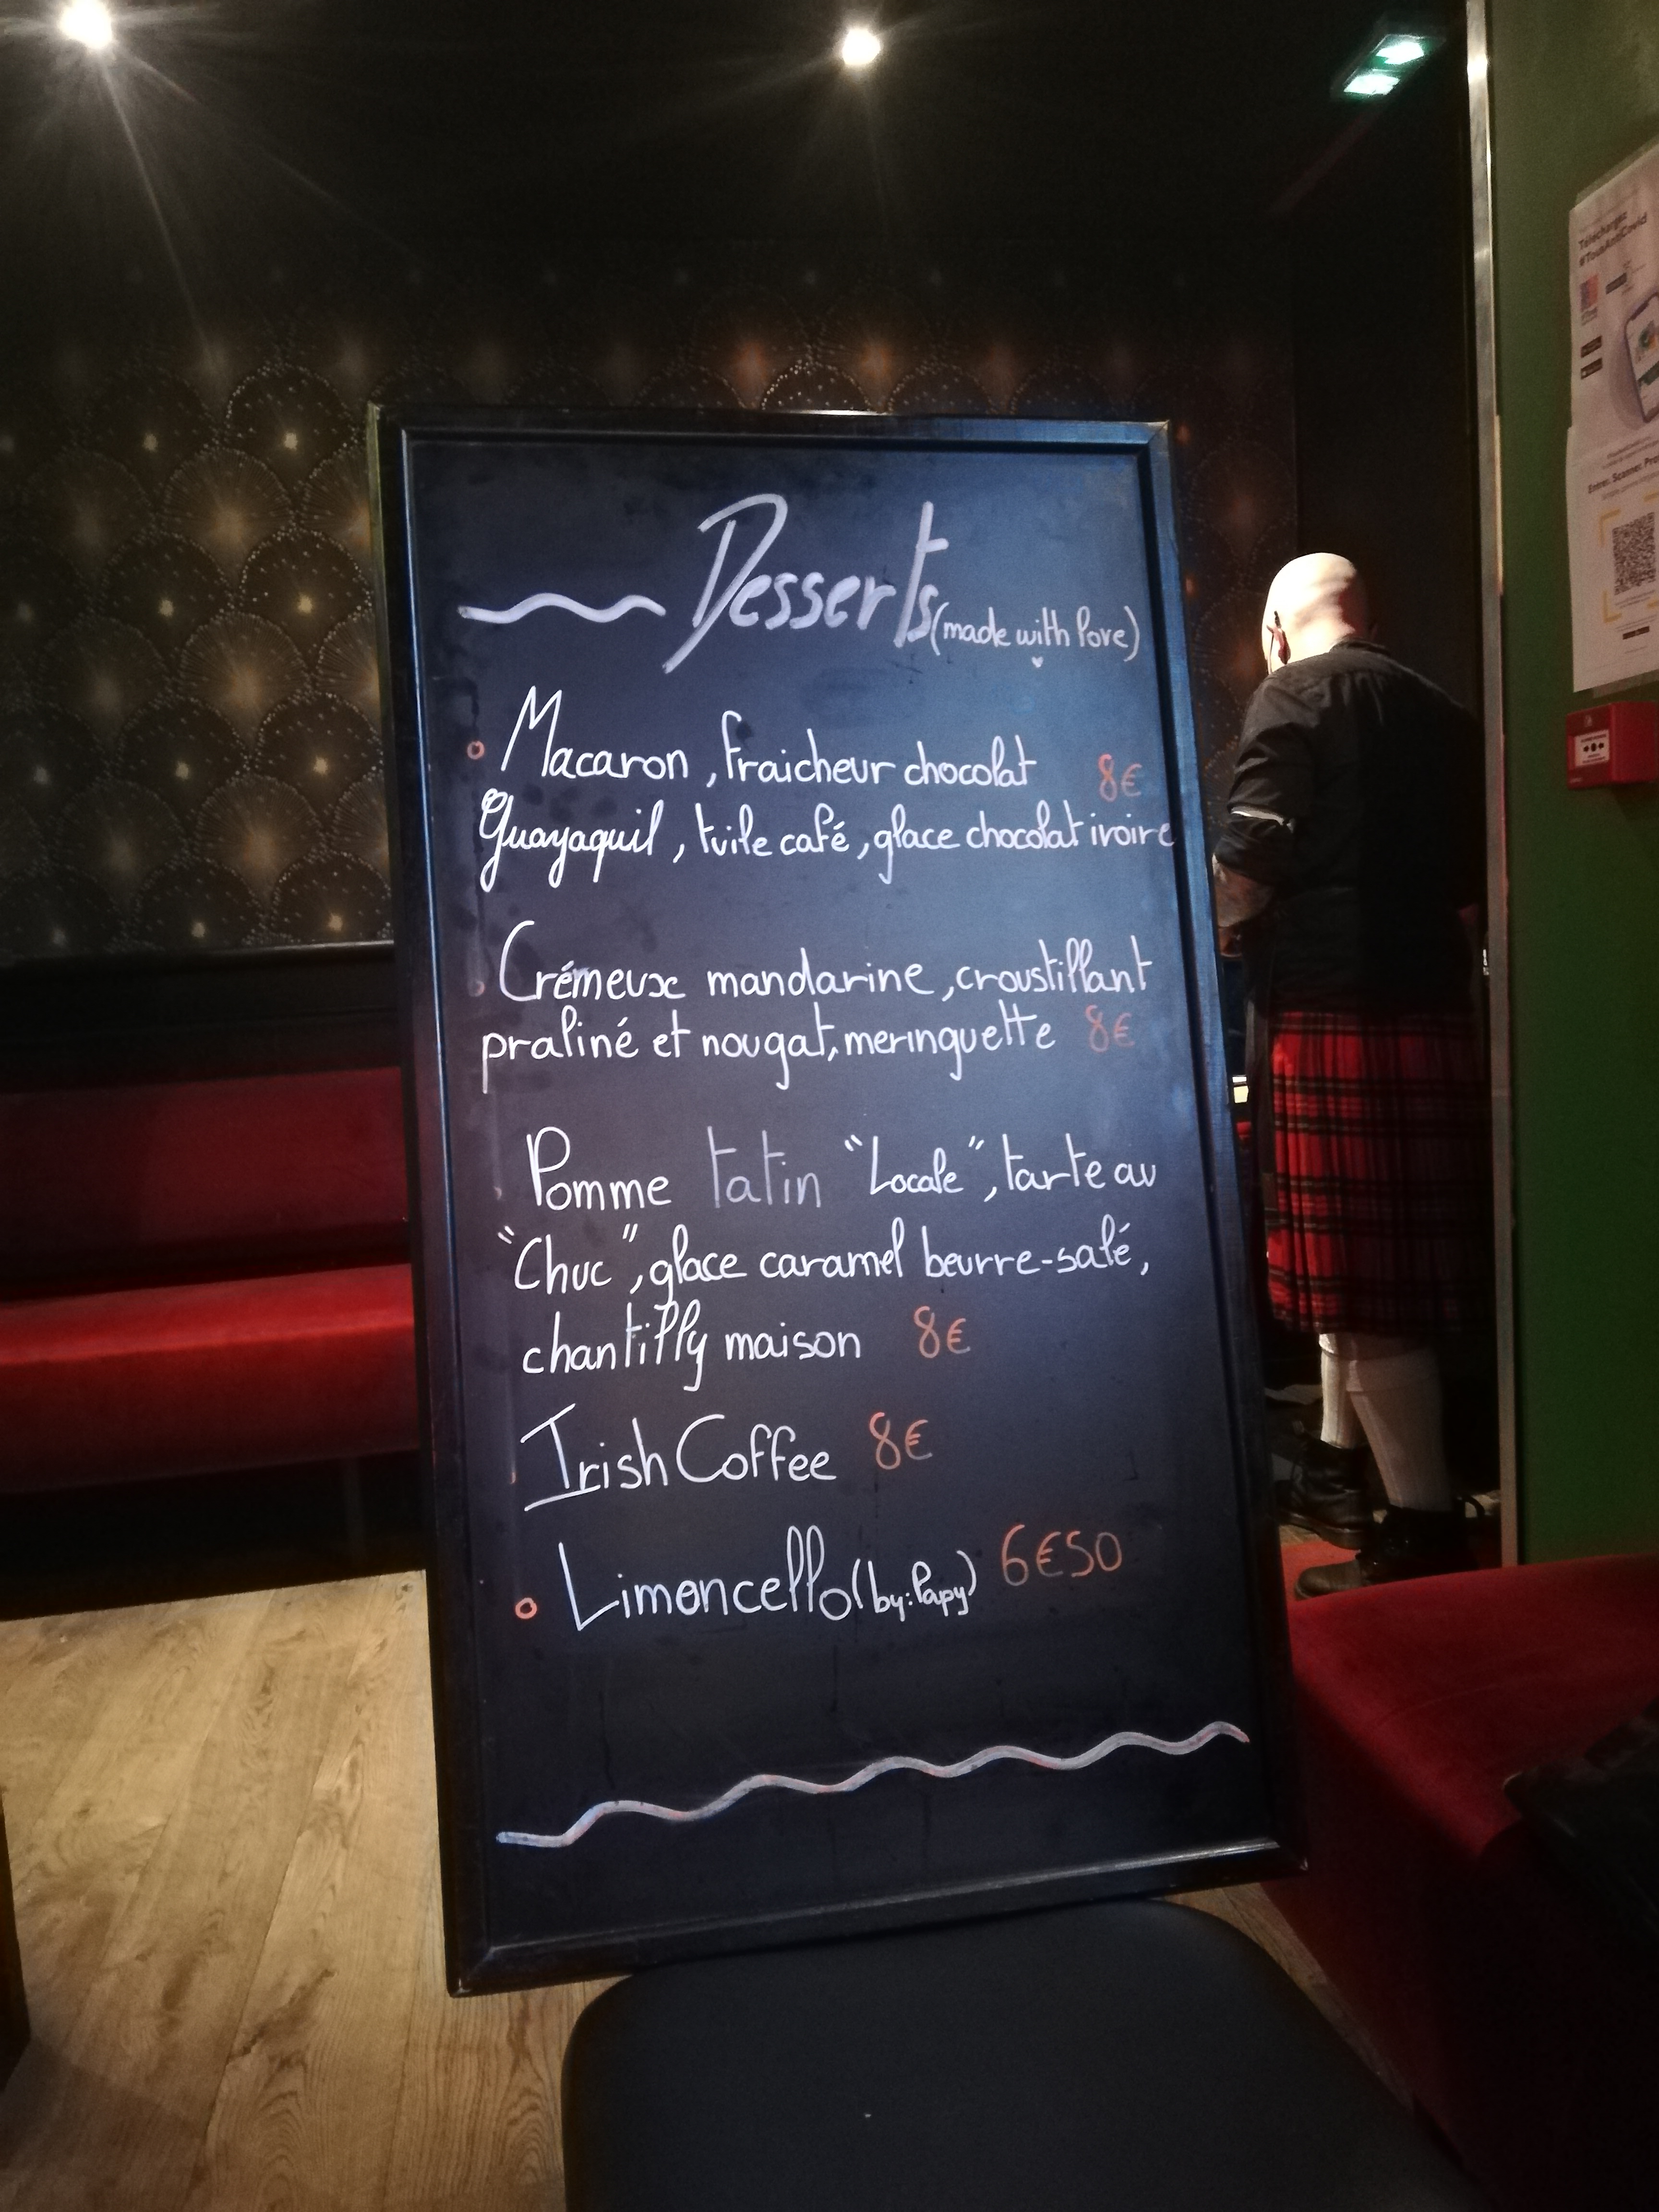 Desserts (made with love)
Macaron, fraicheur chocolat 8€
Guayaquil, tuile café, glace chocolat ivoire
Crémeux mandarine, croustillant
praliné et nougat, meringuette 8€
Pomme tatin "Locale", tarte au
"Chuc", glace caramel beurre-salé,
chantilly maison 8€
Irish Coffee 8€
Limoncello (by: Papy) 6€50
Téléchargez
#TousAntiCovid
Entrez. Scannez.